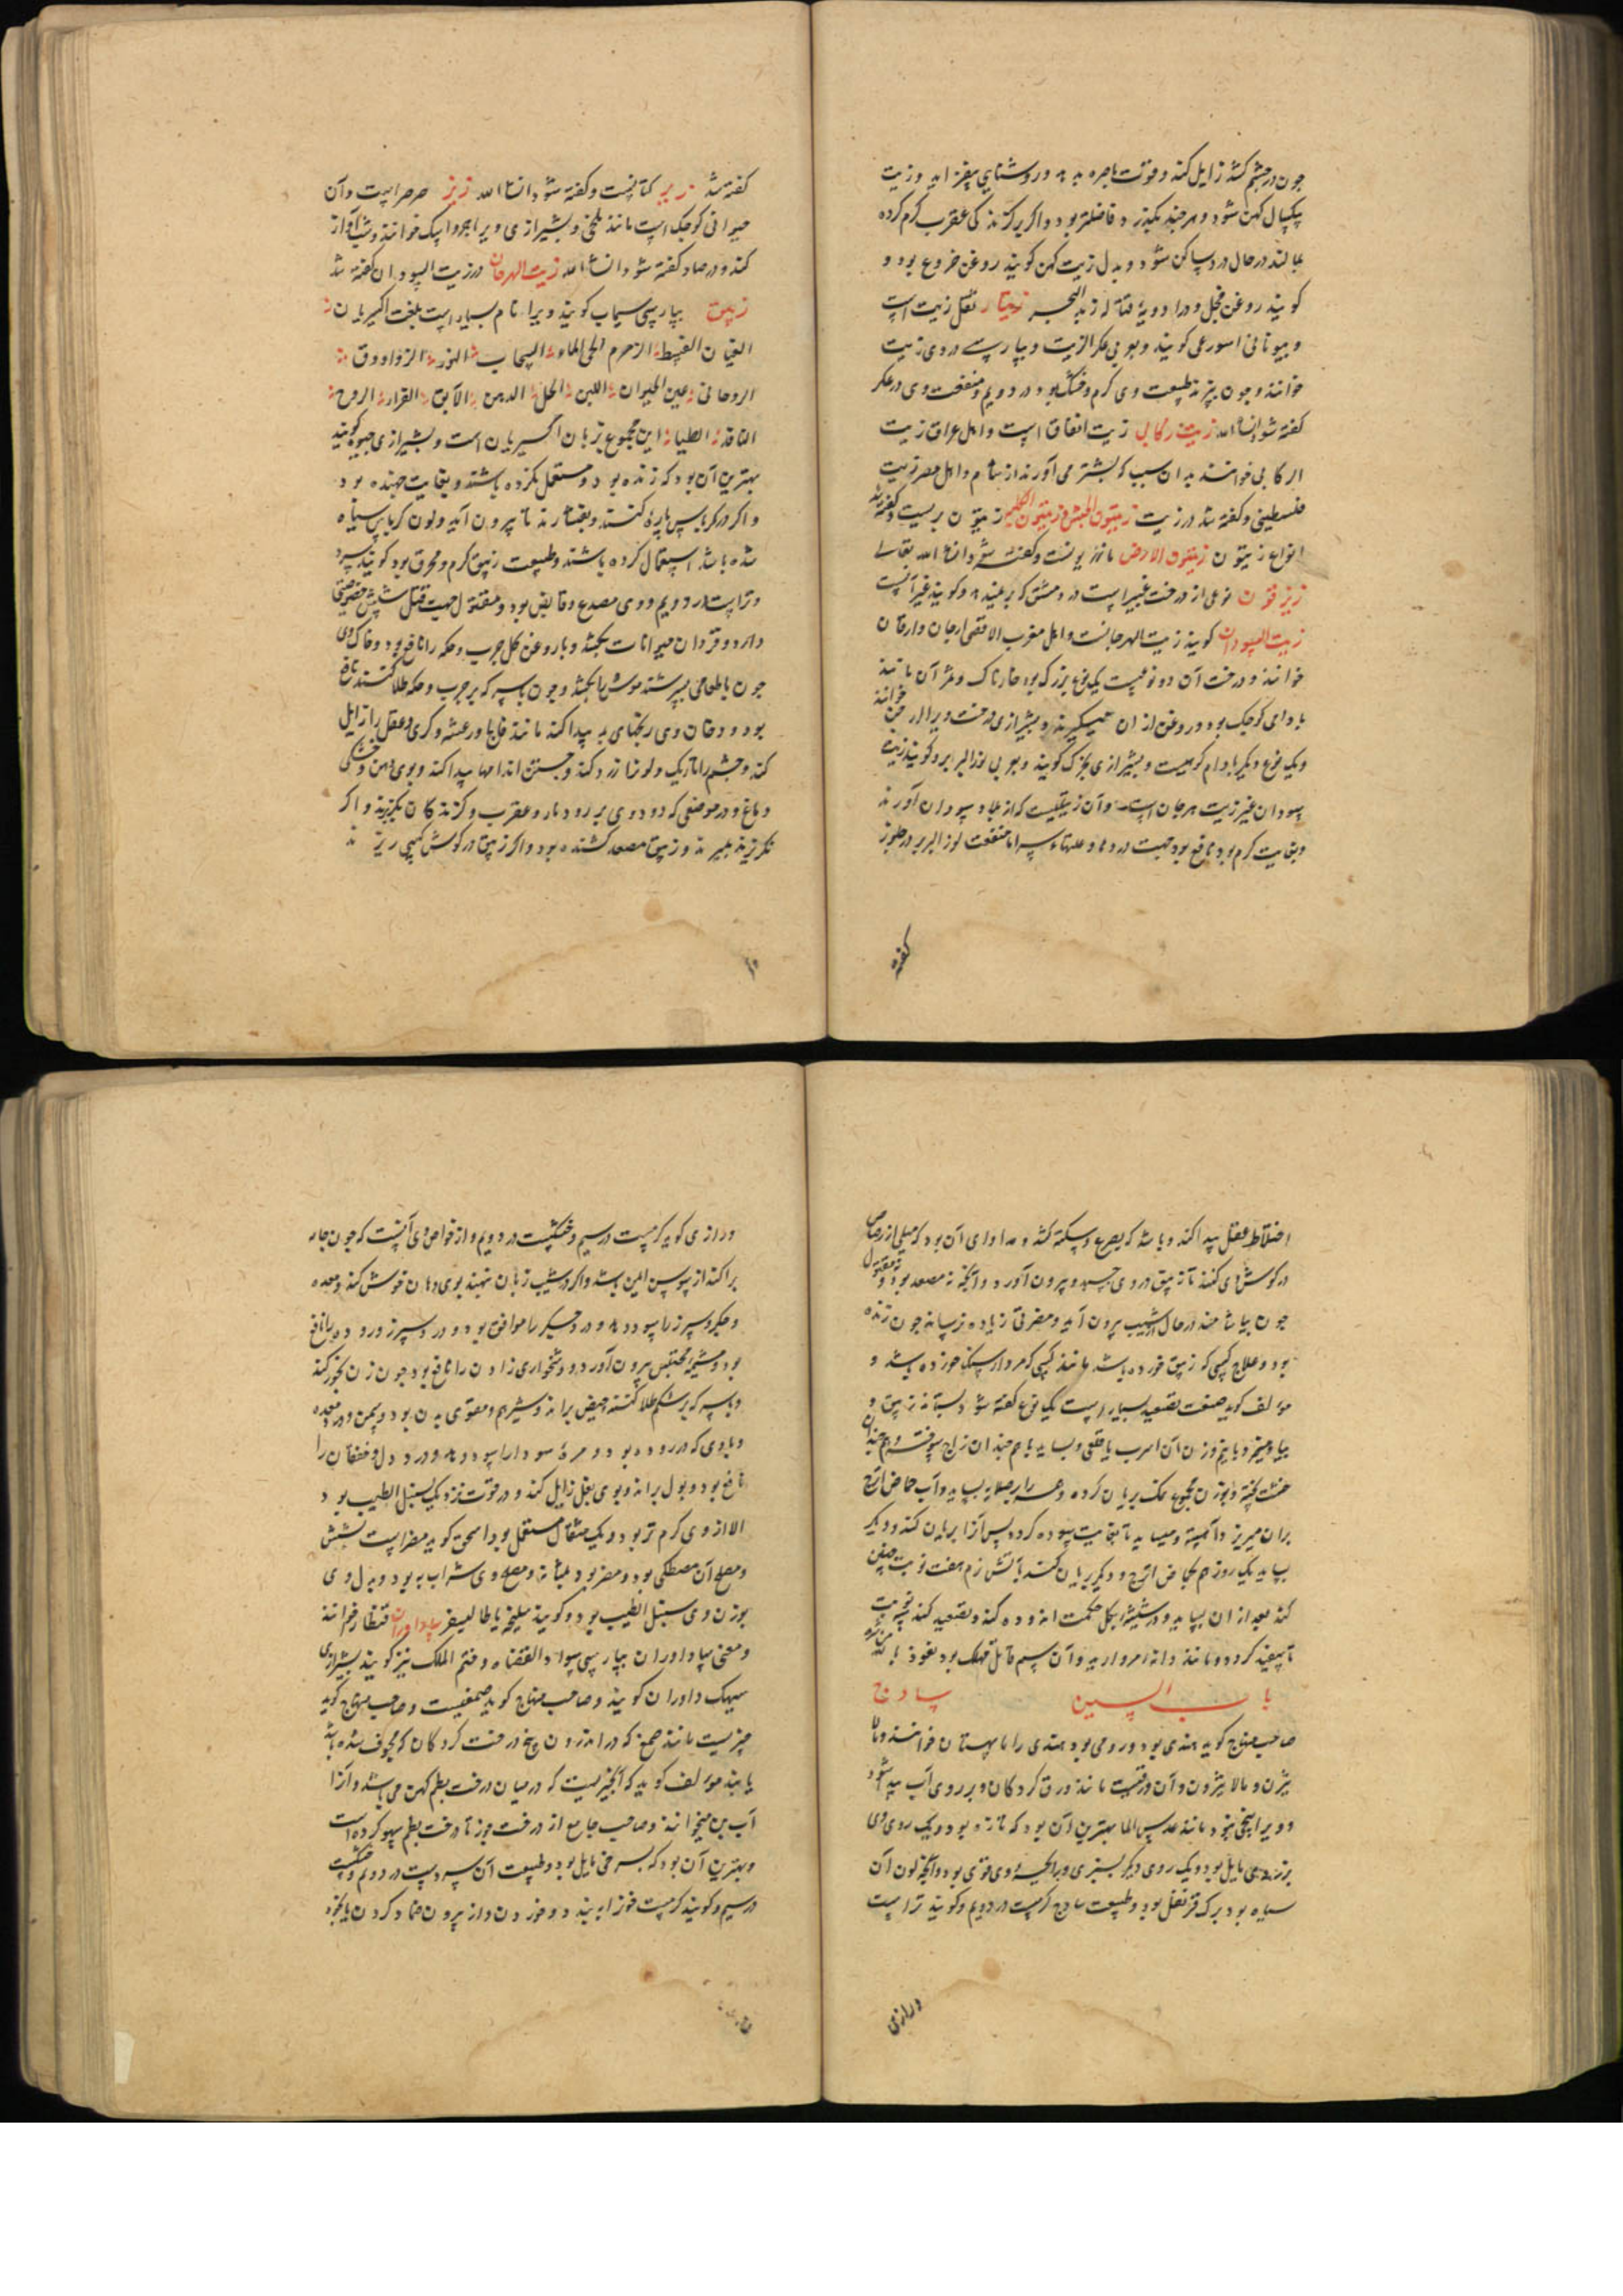 چون در چشم کشند زایل کند و قوت باصره بدهد و روشنایی بیفزاید و زیت
یکسال کهن شود و هر چند بگذرد فاضلتر بود و اگر بر گزندگی عقرب گرم کرده
بمالند در حال درد ساکن شود و بدل زیت کهن گویند روغن خروع بود و
گویند روغن فجل و در ادویهٔ قتاله زبد البحر زیتار ثفل زیت است
و بیونانی اسورعی گویند و بعربی عکر الزیت و بپارسی دردی زیت
خوانند و چون بپزند طبیعت وی گرم و خشک بود در دویم و منفعت وی در عکر
گفته شود انشاء الله زیت رکابی زیت انفاق است و اهل عراق زیت
الرکابی خوانند بدان سبب که بشتر می آورند از شام و اهل مصر زیت
فلسطینی و گفته شد در زیت زیتون الحبش و زیتون الکلبه زیتون بریست و گفته شد
انواع زیتون زیتون الارض مازریونست و گفته شود انشاء الله تعالی
زیزفون نوعی از درخت غبیراست در دمشق که بر نمیدهد و گویند غیر آنست
زیت السودان گویند زیت الهرجانست و اهل مغرب الاقصی ارجان و ارقان
خوانند و درخت آن دو نوعیست یک نوع بزرگ بود خارناک و ثمر آن مانند
بادامی کوچک بود و روغن از ان میگیرند و بشیرازی درخت ویرا ارجن خوانند
و یک نوع دیگر بادام کوهیست و بشیرازی بخرک گویند و بعربی لوز البربر و گویند زیت
سودان غیر زیت هرجان است و آن زیتیست که از بلاد سودان آورند
و بغایت گرم بود نافع بود جهت دردها و علتهاء سرد اما منفعت لوز البربر در جلوز
گفته
گفته شد زیر کتانست و گفته شود انشاء الله زیز صرصر است و آن
حیوانی کوچک است مانند ملخی و بشیرازی ویرا جروا سک خوانند و شب آواز
کند و در صاد گفته شود انشاء الله زیت الهرجان در زیت السودان گفته شد
زیبق بپارسی سیماب گویند و ویرا نام بسیار است بلغت اکسیریان
الغیان القسط الزحرم الحی الماء السحاب النور الزواووق
الروحانی عین الحیوان اللبن الخل الدهن الآبق الفرار الروح
النافذ الطیار این مجموع بزبان اکسیریان است و بشیرازی جیوه گویند
بهترین آن بود که زنده بود و مستعمل نکرده باشند و بغایت جهنده بود
و اگر در کرباس پارهٔ کنند و بفشارند تا بیرون آید و لون کرباس سیاه
شده باشد استعمال کرده باشند و طبیعت زیبق گرم و محرق بود گویند سرد
و تر است در دویم و وی مصدع و قابض بود و مقتول جهت قتل شپش خصوصیتی
دارد و قردان حیوانات بکشد و با روغن گل جرب و حکه را نافع بود و خاک وی
چون با طعامی بسرشند موش را بکشد و چون با سرکه بر جرب و حکه طلا کنند نافع
بود و دخان وی رنجهای بد پیدا کند مانند فالج و رعشه و کری و عقل را زایل
کند و چشم را تاریک و لونا زرد کند و جستن اندامها پیدا کند و بوی دهن و خشکی
دماغ و در موضعی که دود وی برود مار و عقرب و گزندگان بگریزند و اگر
نگریزند بمیرند و زیبق مصعد کشنده بود و اگر زیبق در گوش کسی ریزند
اختلاط عقل پیدا کند و باشد که بصرع و سکته کشد و مداوای آن بود که میلی از رصاص
در گوش وی کنند تا زیبق در وی چسبد و بیرون آورد و آنچه نه مصعد بود و نه مقتول
چون بیاشامند در حال از شیب بیرون آید و مضرتی زیاده نرساند چون زنده
بود و علاج کسی که زیبق خورده باشد مانند کسی که مردار سنک خورده باشد و
مولف گوید صنعت تصعید بسیار است یک نوع گفته شود بستانند زیبق و
بیامیزد و بایم وزن آن اسرب یا قلعی و بساید با هم چندان زاج سوخته و هم چندان
خشت پخته و بوزن مجموع نمک بریان کرده و همه را بر صلایه بساید و آب حماض اترج
بران میریزد آهسته و میساید تا بغایت سوده گردد پس آنرا بریان کند و دیگر
بساید یک روز هم بحماض اترج و دیگر بریان کند بآتش نرم هفت نوبت چنین
کند بعد از ان بساید و در شیشهٔ بگل حکمت اندوده کند و تصعید کند سه نوبت
تا سفید گردد و مانند دانه مروارید و آن سم قاتل مهلک بود نعوذ بالله من شره
باب السین سادج
صاحب منهاج گوید هندی بود و رومی بود هندی را مابهستان خوانند و مالا
بثرن و مالا بثرون و آن ورقیست مانند ورق گردکان و بر روی آب پیدا شود
و ویرا بیخی نبود مانند عدس الما بهترین آن بود که تازه بود و یک روی وی
بزردی مایل بود و یک روی دیگر بسبزی و رایحه وی قوی بود و آنچه لون آن
سیاه بود برک قرنفل بود و طبیعت سادج گرمست در دویم و گویند تر است
ورازی
ورازی گوید گرمست در سیم و خشکست در دویم و از خواص وی آنست که چون جامه
براکند از سوس ایمن باشد و اگر در شیب زبان نهند بوی دهان خوش کند و معده
و جگر و سپرز را سود دهد و درد جگر را موافق بود و درد سپرز و روده را نافع
بود و مشیمهٔ محتبس بیرون آورد و دشخواری زادن را نافع بود چون زن بخور کند
و با سرکه بر شکم طلا کنند حیض براند و شیر هم و مقوی بدن بود و بهمن و درد معده
و بادی که در روده بود و مرهٔ سودا را سود دهد و درد دل و خفقان را
نافع بود و بول براند و بوی بغل زایل کند و در قوت نزدیک بسنبل الطیب بود
الا از وی گرم تر بود و یک مثقال مستعمل بود اسحق گوید مضر است بشش
و مصلح آن مصطکی بود و مضر بود بمثانه و مصلح وی شراب به بود و بدل وی
بوزن وی سنبل الطیب بود و گویند سلیخه یا طالیسفر سیاداوران قنطار خوانند
و معنی سیاداوران بپارسی سواد القضاه و ختم الملک نیز گویند بشیرازی
سیهک داوران گویند و صاحب منهاج گوید صمغیست و صاحب منهاج گوید
چیزیست مانند صمغ که در اندرون بیخ درخت گردکان که مجوف شده باشد
یابند مولف گوید که آنچیزیست که در میان درخت بطم کهن می باشد و آنرا
آب بن میخوانند و صاحب جامع از درخت جوز تا درخت بطم سهو کرده است
و بهترین آن بود که بسرخی مایل بود و طبیعت آن سردست در دویم و خشکست
در سیم و گویند گرمست خون ببندد و خوردن و از بیرون ضماد کردن یا بخود